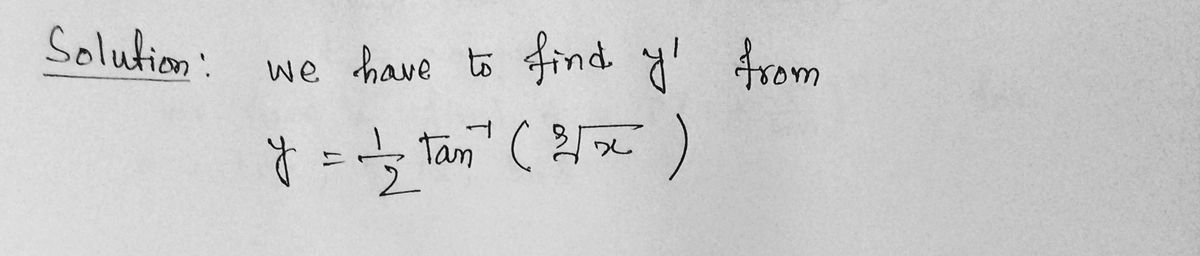 Solution: we have to find y' from
y = 1/2 Tan⁻¹ (∛x)